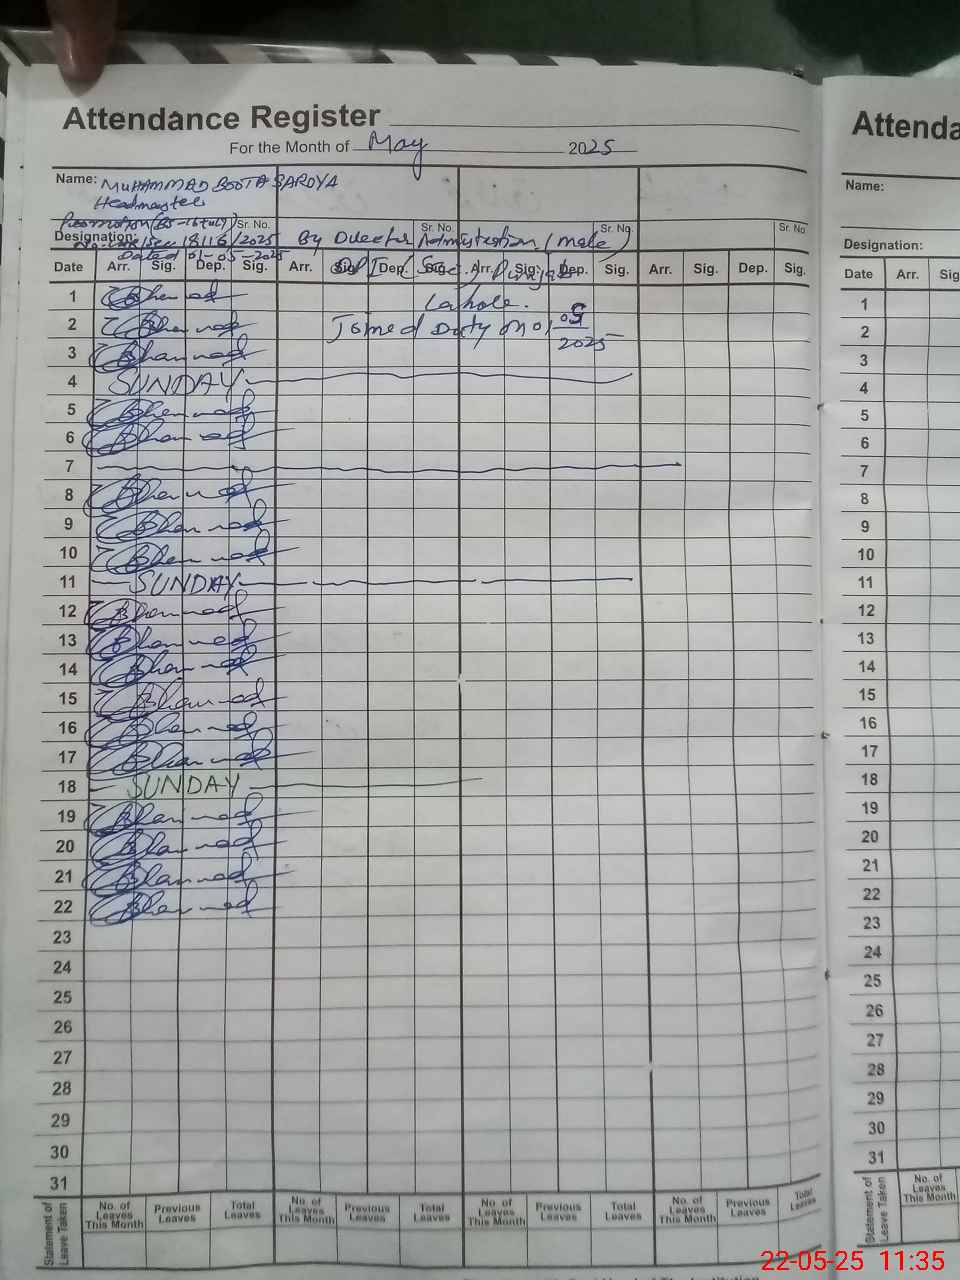 Attendance Register
For the Month of May 2025
Name: MUHAMMAD BOOTA SAROYA
Headmaster
Promotion (BS-16 to 17) Sr. No. Sr. No. Sr. No. Sr. No
Designation: 18116/2025 By Director Administration (male)
Dated 01-05-2025 DPI (Sec.) Punjab
Date Arr. Sig. Dep. Sig. Arr. Sig. Dep. Sig. Arr. Sig. Dep. Sig. Arr. Sig. Dep. Sig.
Lahore.
Joined Duty on 01 05 2025
1
2
3
4 SUNDAY
5
6
7
8
9
10
11 SUNDAY
12
13
14
15
16
17
18 SUNDAY
19
20
21
22
23
24
25
26
27
28
29
30
31
Statement of Leave Taken
No. of Leaves This Month Previous Leaves Total Leaves No. of Leaves This Month Previous Leaves Total Leaves No. of Leaves This Month Previous Leaves Total Leaves No. of Leaves This Month Previous Leaves Total Leaves
Attenda
Name:
Designation:
Date Arr. Sig
1
2
3
4
5
6
7
8
9
10
11
12
13
14
15
16
17
18
19
20
21
22
23
24
25
26
27
28
29
30
31
Statement of Leave Taken
No. of Leaves This Month
22-05-25 11:35